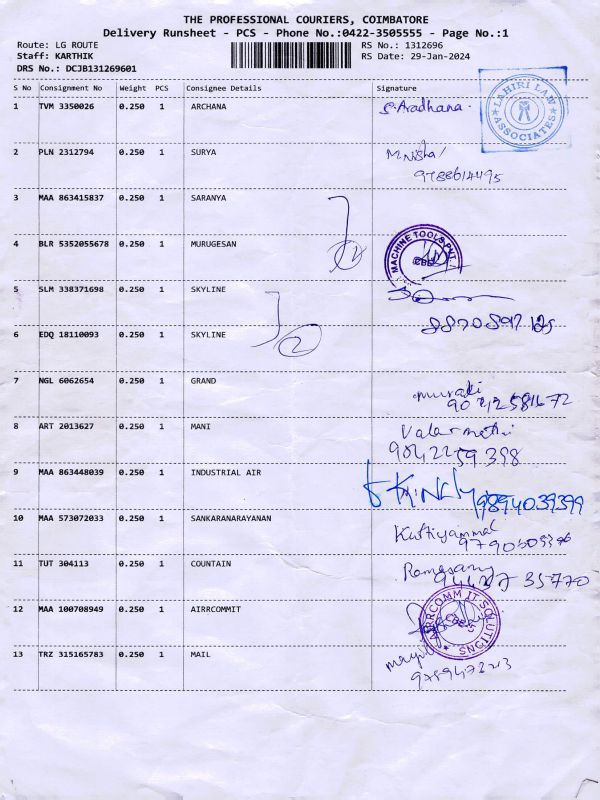 THE PROFESSIONAL COURIERS, COIMBATORE
Delivery Runsheet - PCS - Phone No.:0422-3505555 - Page No.:1
Route: LG ROUTE
RS No.: 1312696
Staff: KARTHIK
RS Date: 29-Jan-2024
DRS No.: DCJB131269601
S No Consignment No Weight PCS Consignee Details Signature
1 TVM 3350026 0.250 1 ARCHANA S. Aradhana.
LAHIRI LAW ASSOCIATES
2 PLN 2312794 0.250 1 SURYA M.Nisha
9788614495
3 MAA 863415837 0.250 1 SARANYA
4 BLR 5352055678 0.250 1 MURUGESAN
MACHINE TOOLS PVT.
CBE
2
5 SLM 338371698 0.250 1 SKYLINE
6 EDQ 18110093 0.250 1 SKYLINE
2
7 NGL 6062654 0.250 1 GRAND murali
8 ART 2013627 0.250 1 MANI Valarmathi
9042259398
9 MAA 863448039 0.250 1 INDUSTRIAL AIR
9894039399
10 MAA 573072033 0.250 1 SANKARANARAYANAN Kuttiyammal
11 TUT 304113 0.250 1 COUNTAIN Ramasamy
12 MAA 100708949 0.250 1 AIRRCOMMIT
AIRRCOMM IT SOLUTIONS
13 TRZ 315165783 0.250 1 MAIL
9789473213